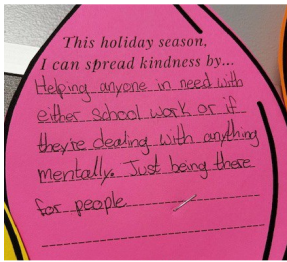 This holiday season,
I can spread kindness by...
Helping anyone in need with
either school work or if
they're dealing with anything
mentally. Just being there
for people